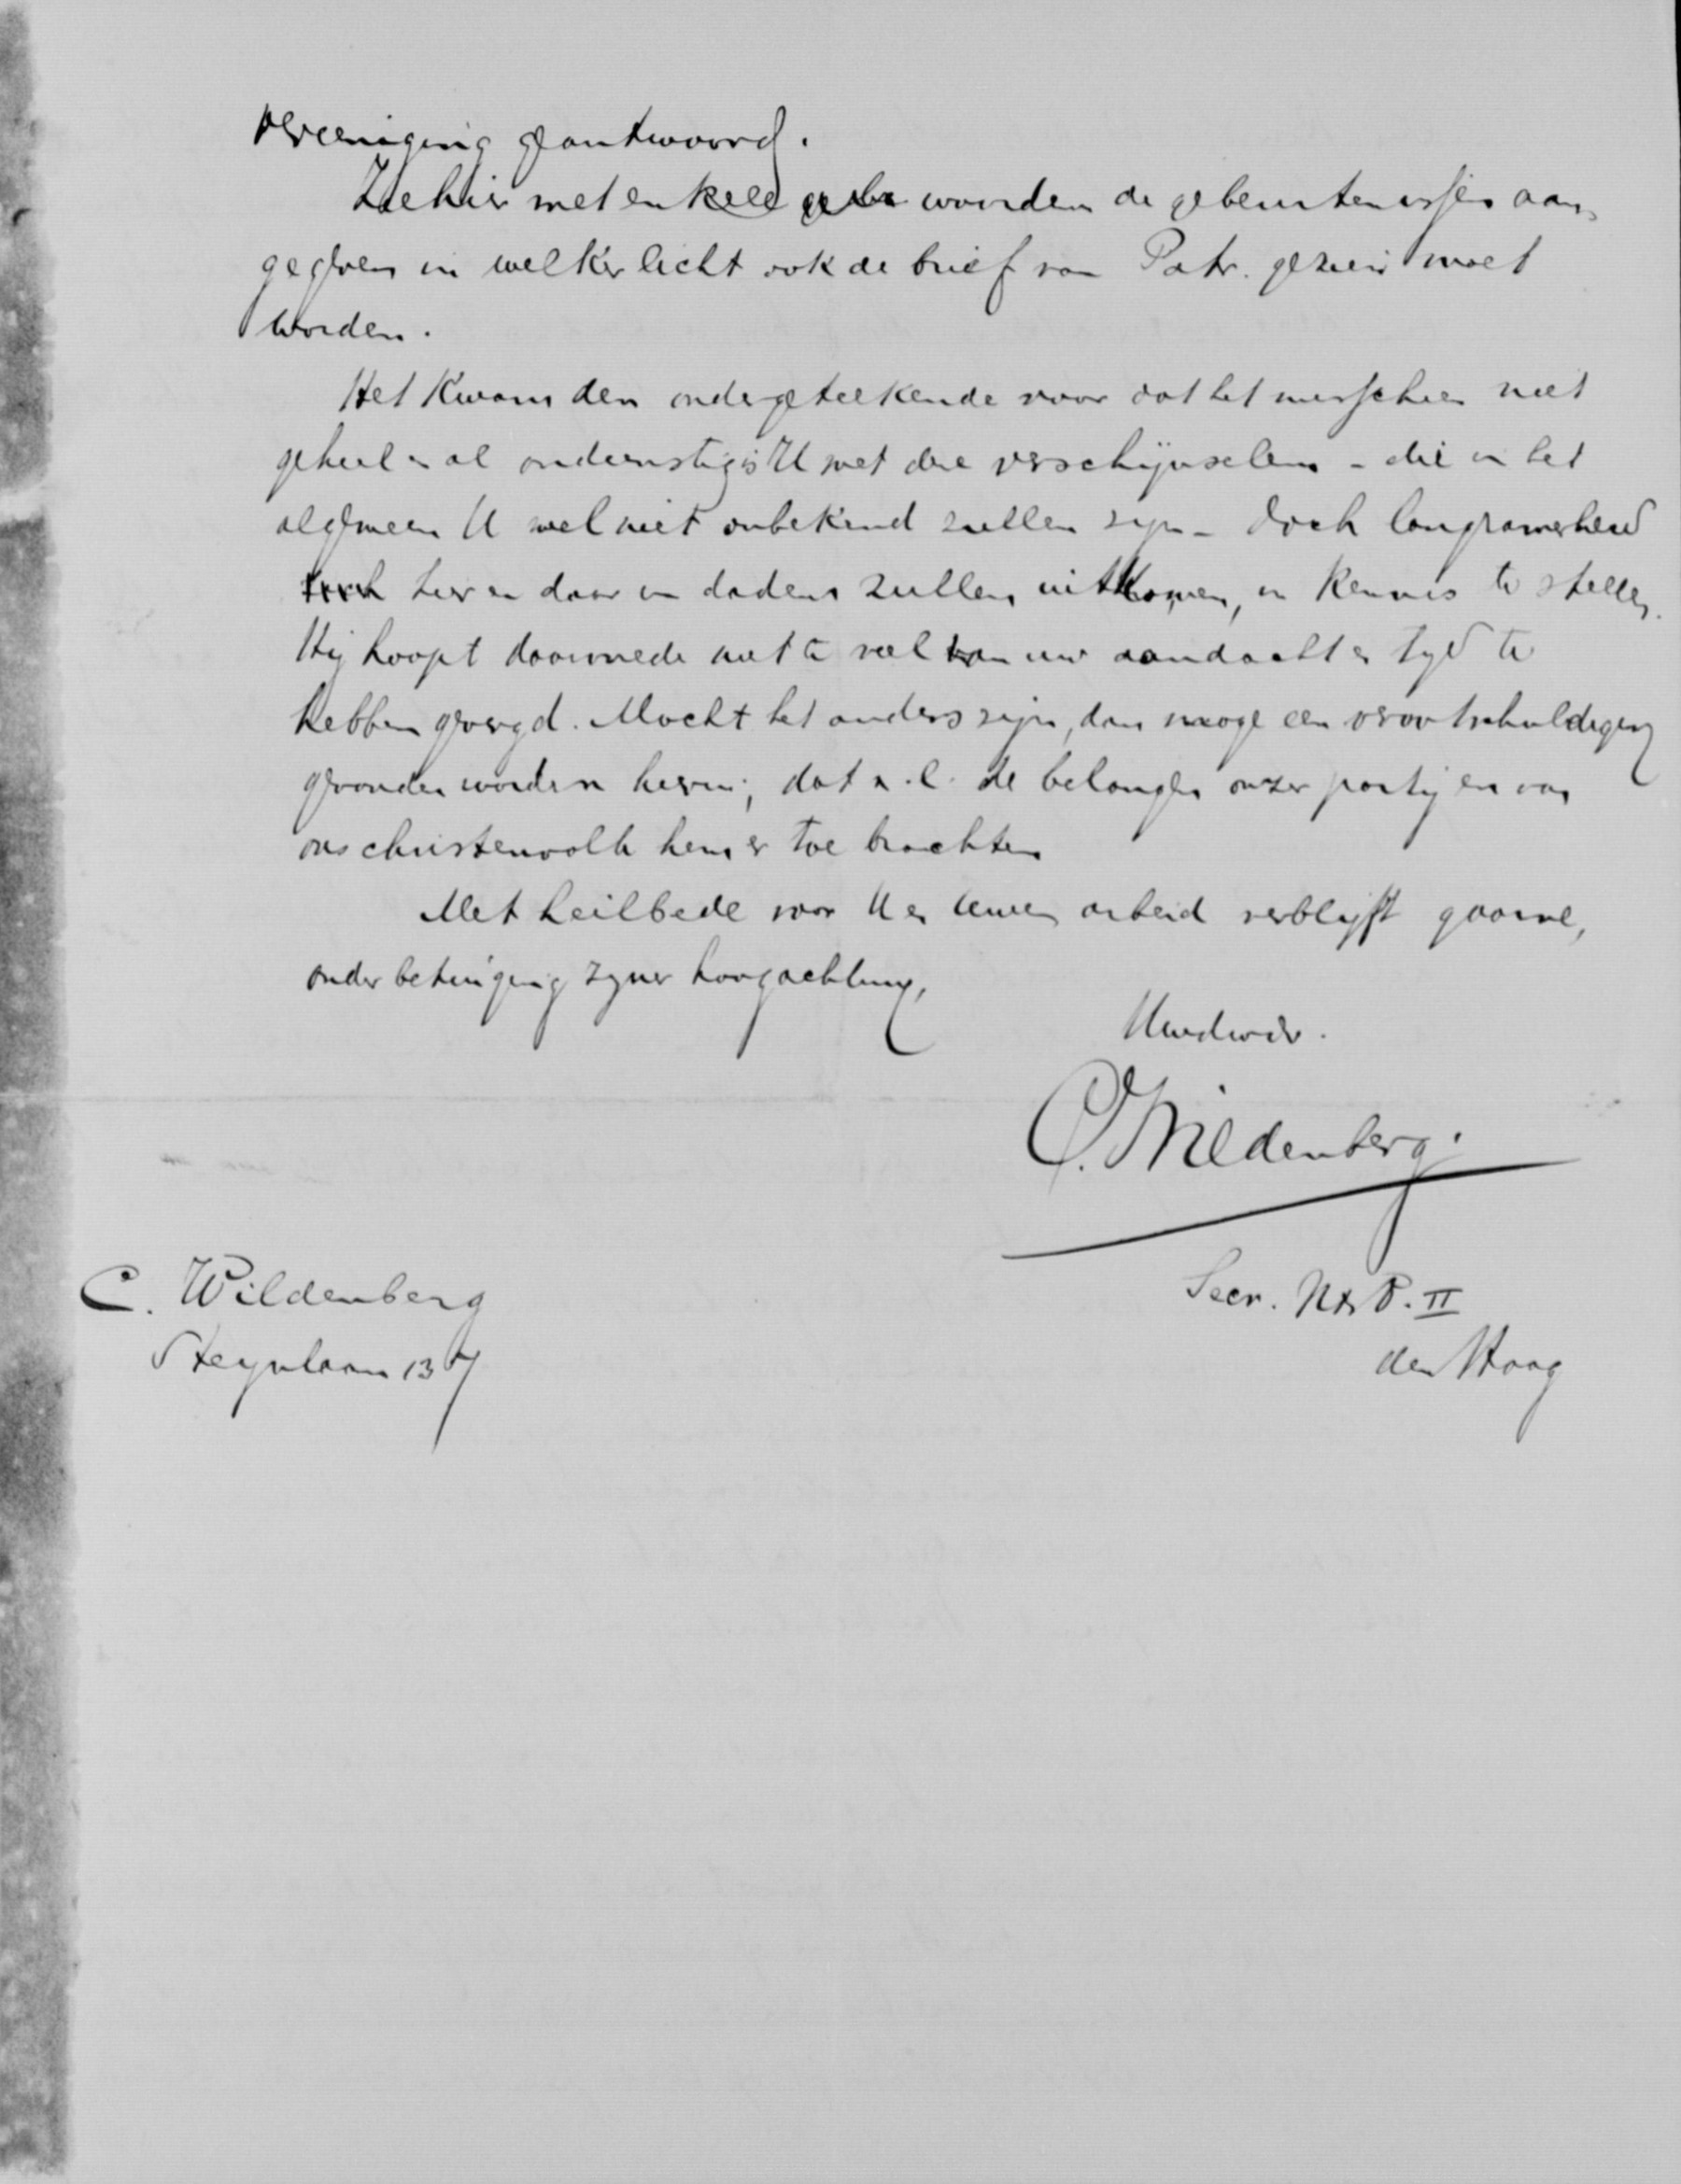 vereeniging geantwoord.
Ziehier met enkele woorden de gebeurtenissen aan-
gegeven in welker licht ook de brief van Patr. gezien moet
worden.
Het kwam den ondergeteekende voor dat het misschien niet
geheel en al ondienstig is U met deze verschijnselen - die in het
algemeen U wel niet onbekend zullen zijn - doch langzamerhand
hier en daar in daden zullen uitkomen, in kennis te stellen.
Hij hoopt daarmede niet te veel van uw aandacht en tijd te
hebben gevergd. Mocht het anders zijn, dan moge een verontschuldiging
gevonden worden hierin; dat n.l. de belangen onzer partij en van
ons christenvolk hem er toe brachten
Met heilbede voor U en uwen arbeid verblijft gaarne,
onder betuiging zijner hoogachting,
Uwdwdr.
C. Wildenberg.
C. Wildenberg
Secr. K.P. II
Steynlaan 137
den Haag